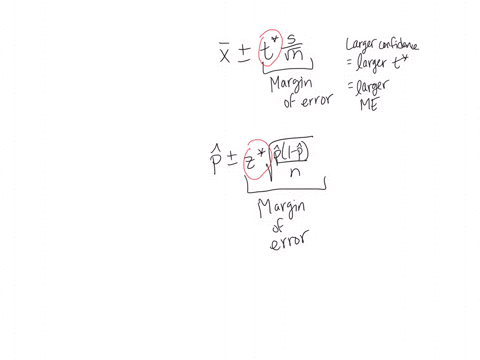 x̄ ± t* s/√n
Margin
of error
Larger confidence
= larger t*
= larger
ME
p̂ ± z* √p̂(1-p̂)/n
Margin
of
error